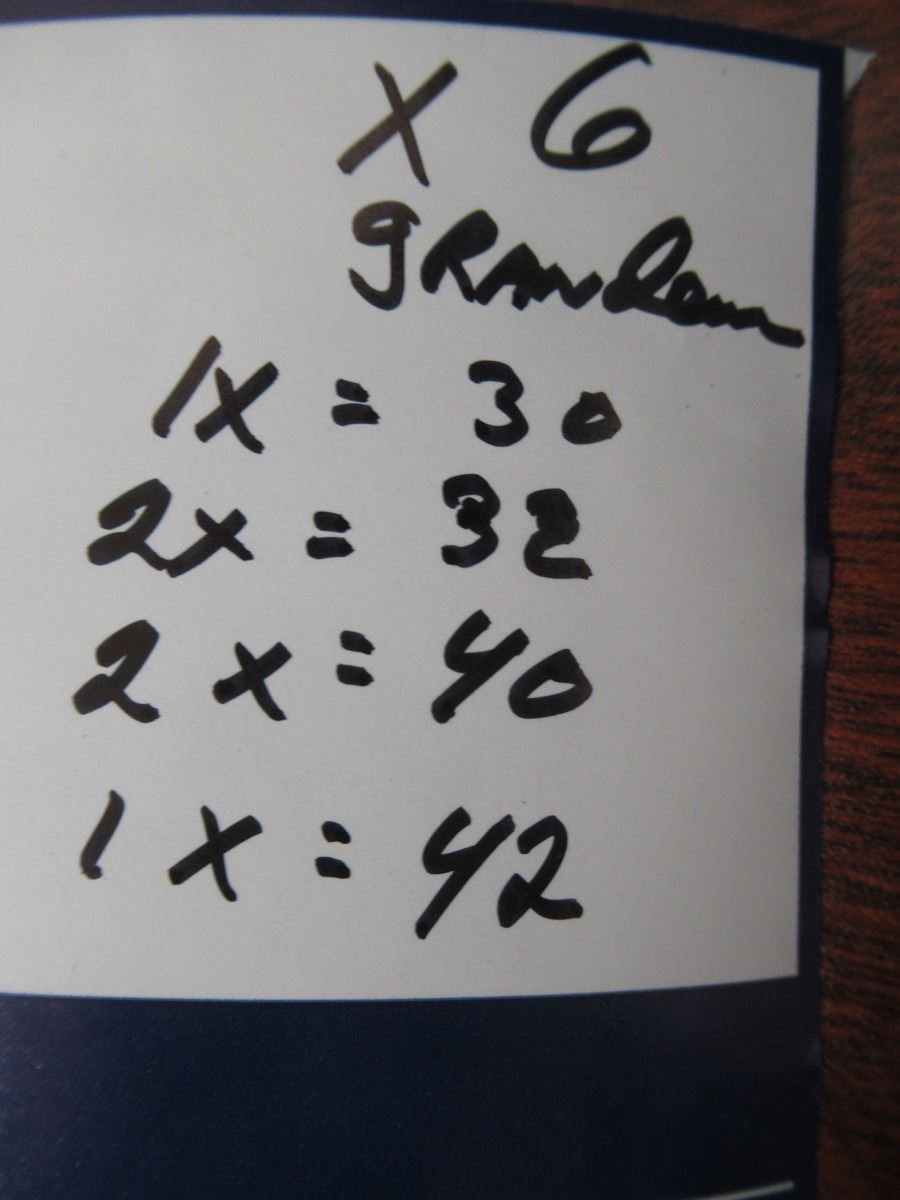 X 6
1X = 30
2X = 32
2 X = 40
1 X = 42